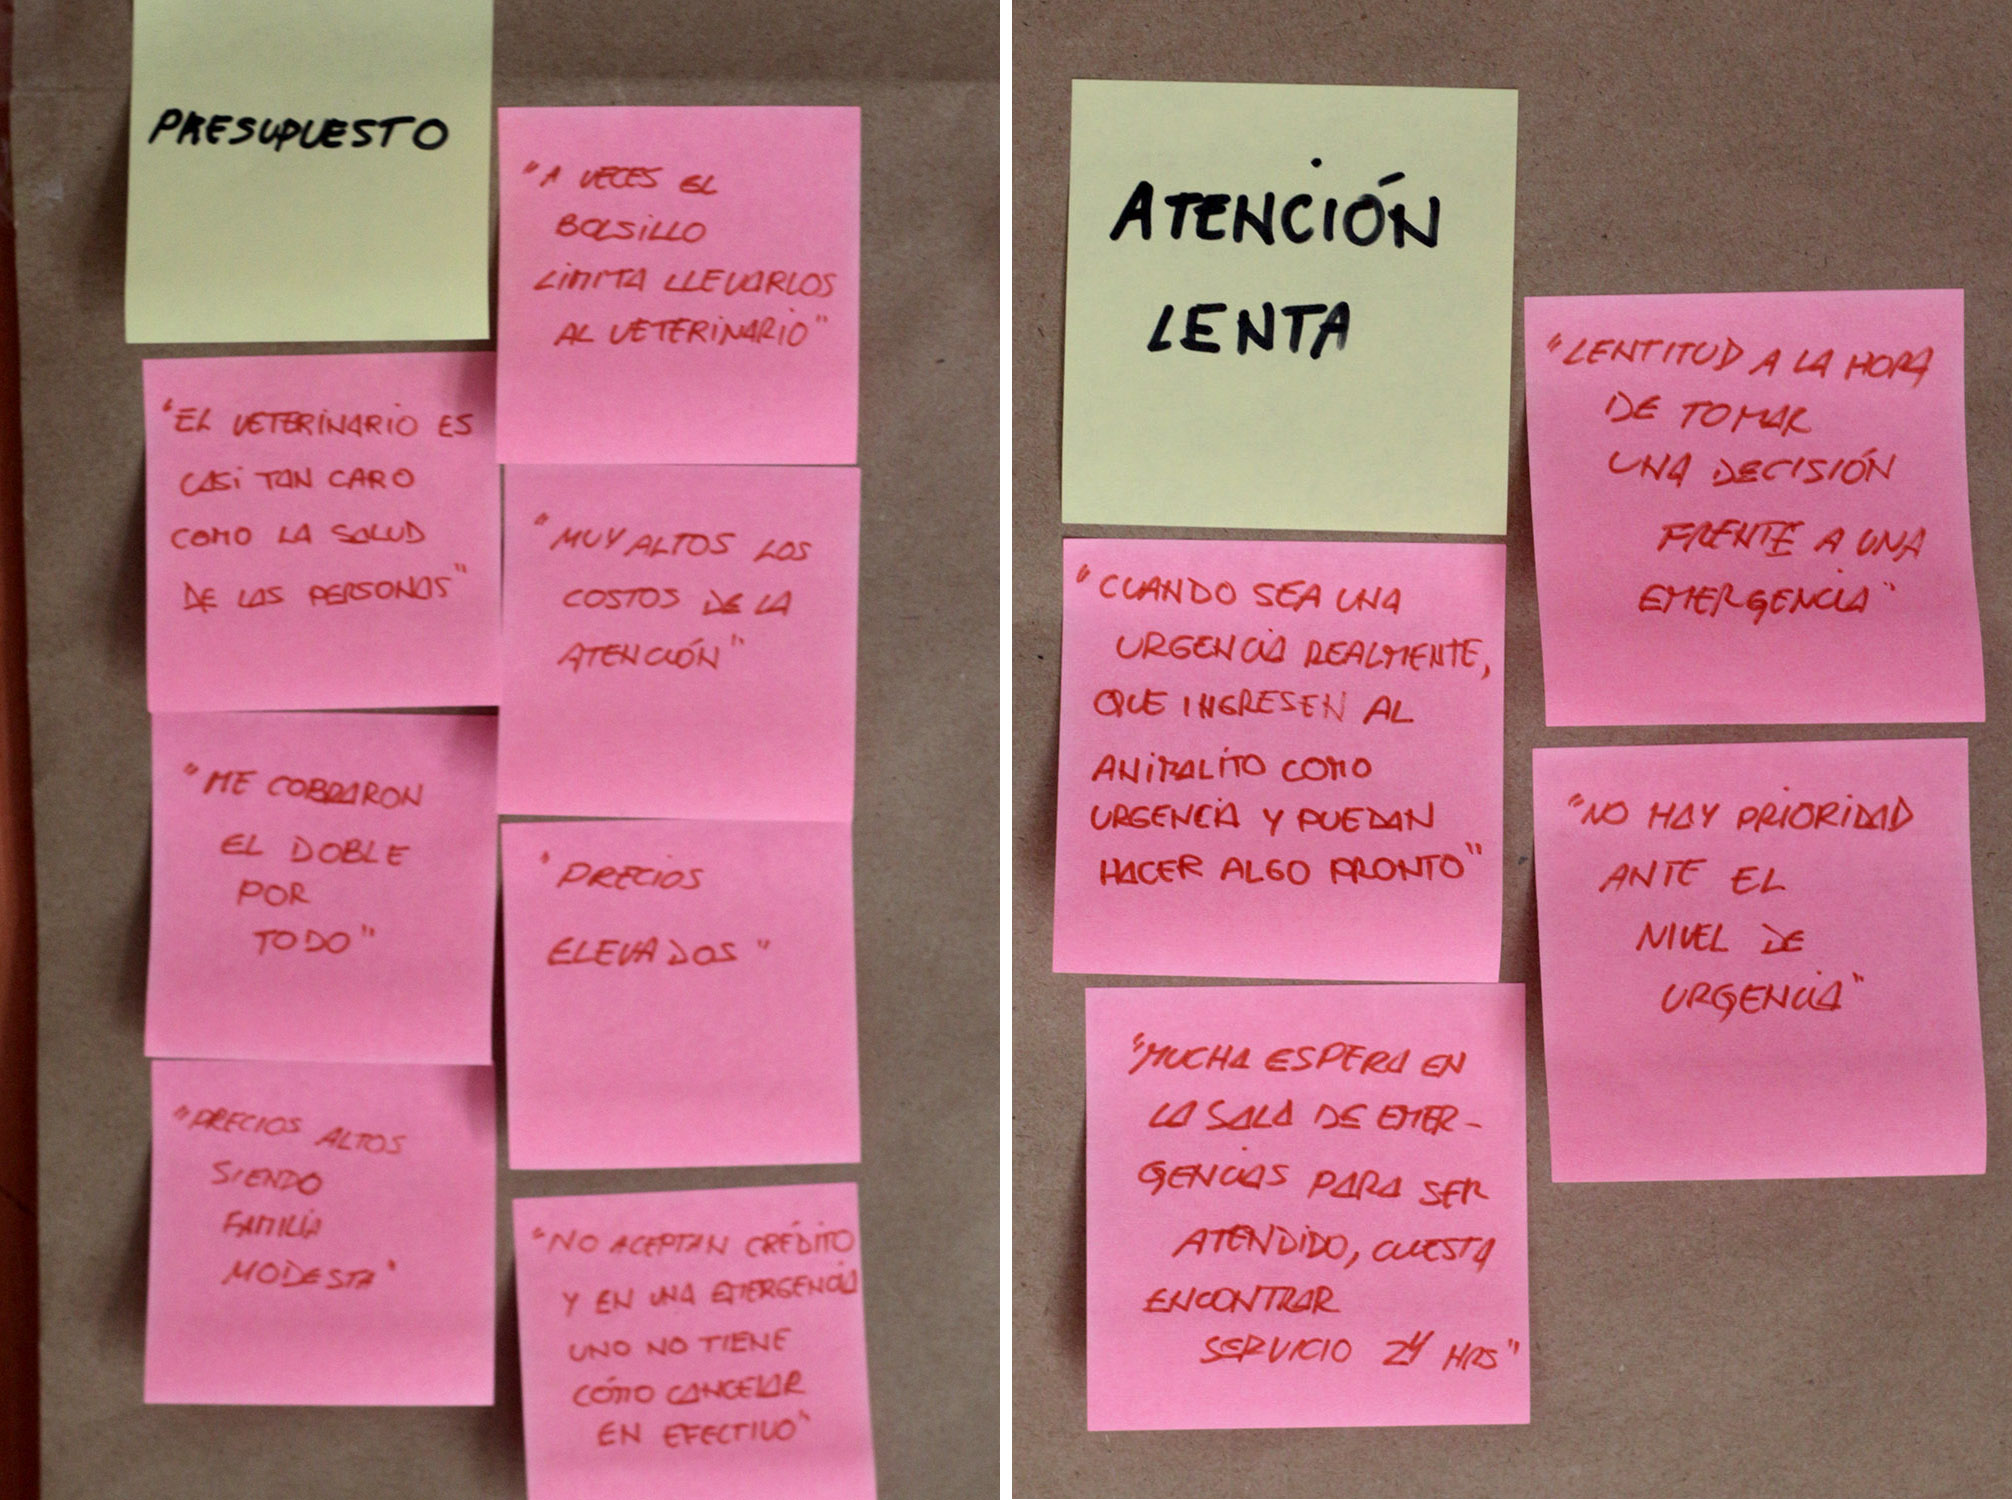 PRESUPUESTO
"EL VETERINARIO ES
CASI TAN CARO
COMO LA SALUD
DE LAS PERSONAS"
"ME COBRARON
EL DOBLE
POR
TODO"
"PRECIOS ALTOS
SIENDO
FAMILIA
MODESTA"
"A VECES EL
BOLSILLO
LIMITA LLEVARLOS
AL VETERINARIO"
"MUY ALTOS LOS
COSTOS DE LA
ATENCIÓN"
"PRECIOS
ELEVADOS"
"NO ACEPTAN CRÉDITO
Y EN UNA EMERGENCIA
UNO NO TIENE
CÓMO CANCELAR
EN EFECTIVO"
ATENCIÓN
LENTA
"CUANDO SEA UNA
URGENCIA REALMENTE,
QUE INGRESEN AL
ANIMALITO COMO
URGENCIA Y PUEDAN
HACER ALGO PRONTO"
"MUCHA ESPERA EN
LA SALA DE EMER-
GENCIAS PARA SER
ATENDIDO, CUESTA
ENCONTRAR
SERVICIO 24 HRS"
"LENTITUD A LA HORA
DE TOMAR
UNA DECISIÓN
FRENTE A UNA
EMERGENCIA"
"NO HAY PRIORIDAD
ANTE EL
NIVEL DE
URGENCIA"